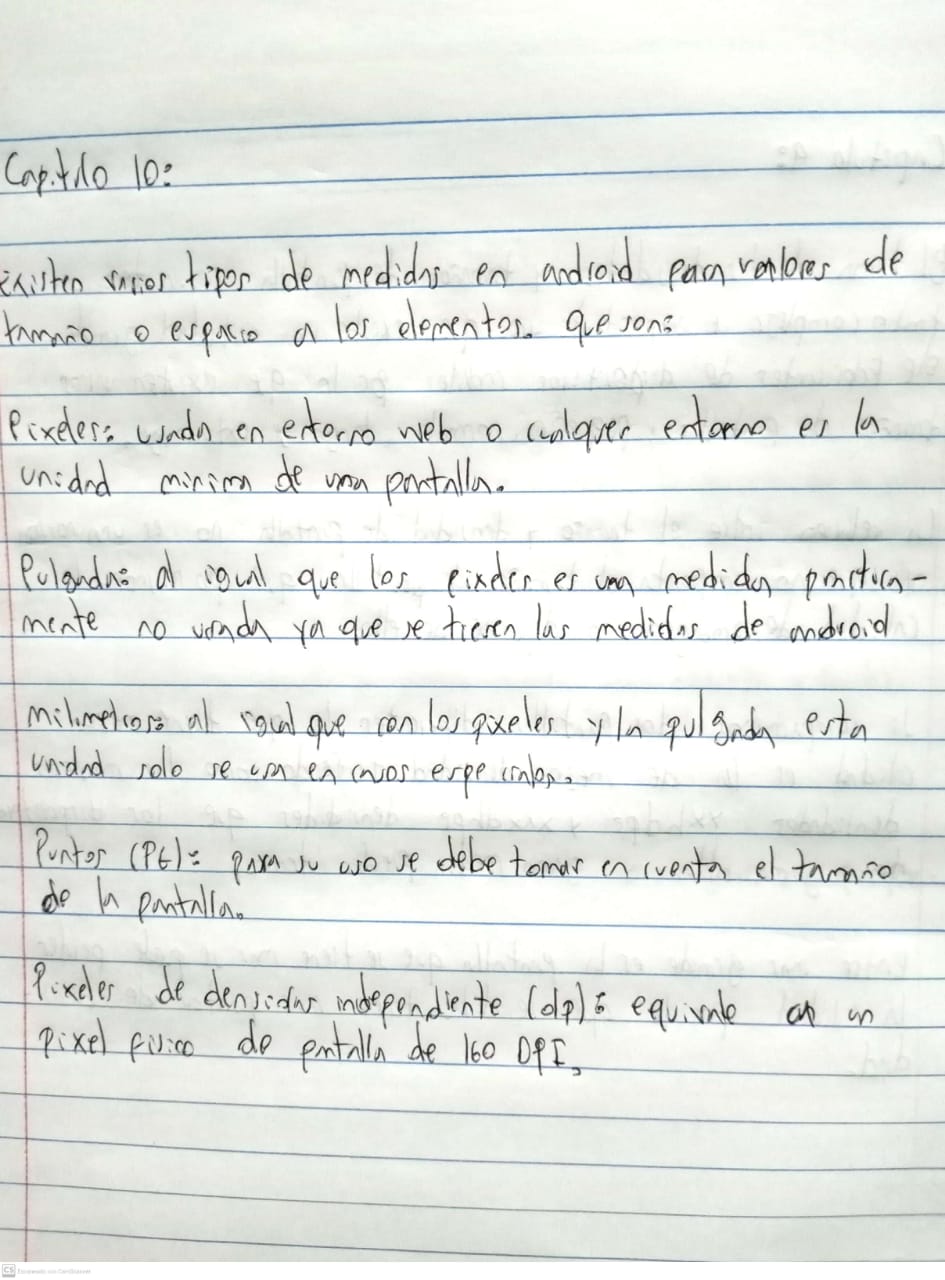 Capitulo 10:
existen varios tipos de medidas en android para valores de
tamaño o espacio a los elementos. que son:
Pixeles: usada en entorno web o cualquier entorno es la
unidad minima de una pantalla.
Pulgadas: al igual que los pixeles es una medida practica-
mente no usada ya que se tienen las medidas de android
milimetros: al igual que con los pixeles y la pulgada esta
unidad solo se usa en casos especiales.
Puntos (Pt): para su uso se debe tomar en cuenta el tamaño
de la pantalla.
Pixeles de densidas independiente (dp): equivale a un
pixel fisico de pntalla de 160 DPI,
CS Escaneado con CamScanner